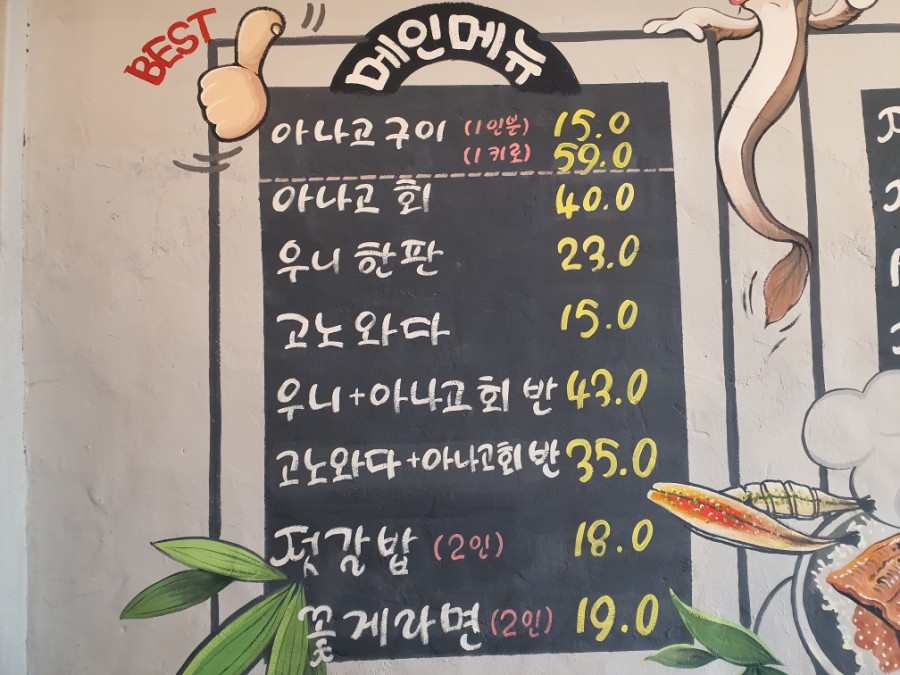 BEST
메인메뉴
아나고구이 (1인분) 15.0
(1키로) 59.0
아나고 회 40.0
우니 한판 23.0
고노와다 15.0
우니+아나고회 반 43.0
고노와다+아나고회 반 35.0
젓갈밥 (2인) 18.0
꽃게라면 (2인) 19.0